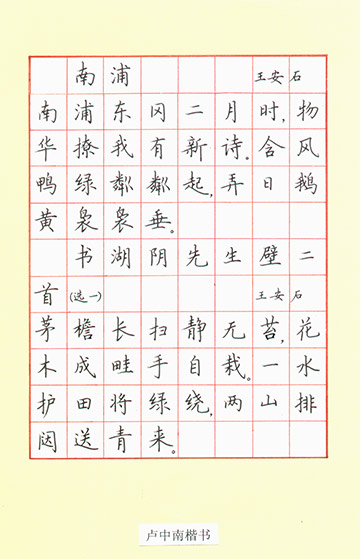 南浦 王安石
南浦东冈二月时,物
华撩我有新诗。含风
鸭绿粼粼起,弄日鹅
黄袅袅垂。
书湖阴先生壁二
首(选一) 王安石
茅檐长扫静无苔,花
木成畦手自栽。一水
护田将绿绕,两山排
闼送青来。
卢中南楷书